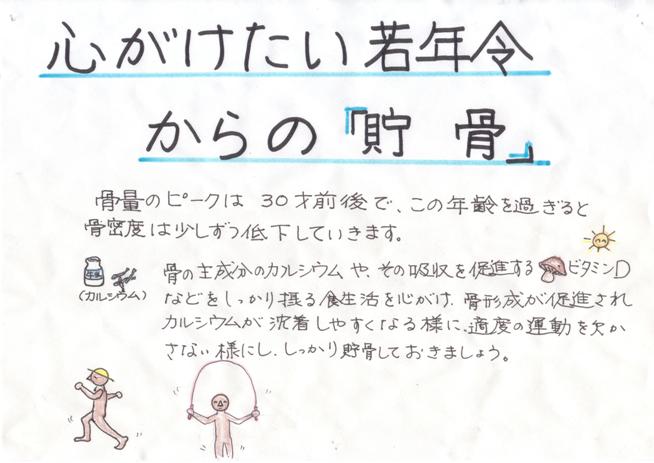 心がけたい若年令
からの『貯骨』
骨量のピークは 30才前後で、この年齢を過ぎると
骨密度は少しずつ低下していきます。
骨の主成分のカルシウムや、その吸収を促進するビタミンD
(カルシウム)
などをしっかり摂る食生活を心がけ、骨形成が促進され
カルシウムが沈着しやすくなる様に、適度の運動を欠か
さない様にし、しっかり貯骨しておきましょう。